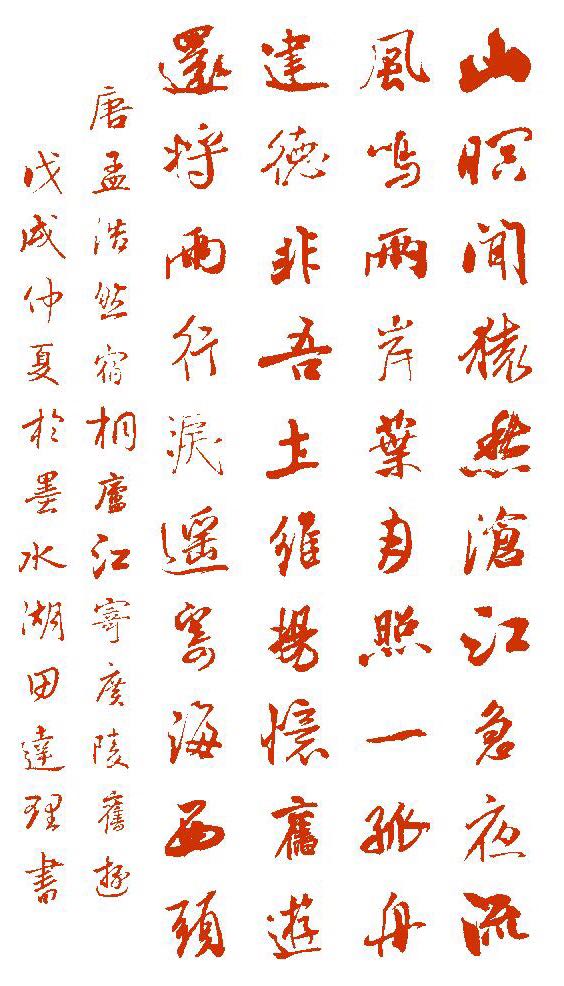 山暝聞猿愁滄江急夜流
風鳴兩岸葉月照一孤舟
建德非吾土維揚憶舊遊
還將兩行淚遙寄海西頭
唐孟浩然宿桐廬江寄廣陵舊遊
戊戌仲夏於墨水湖田達理書